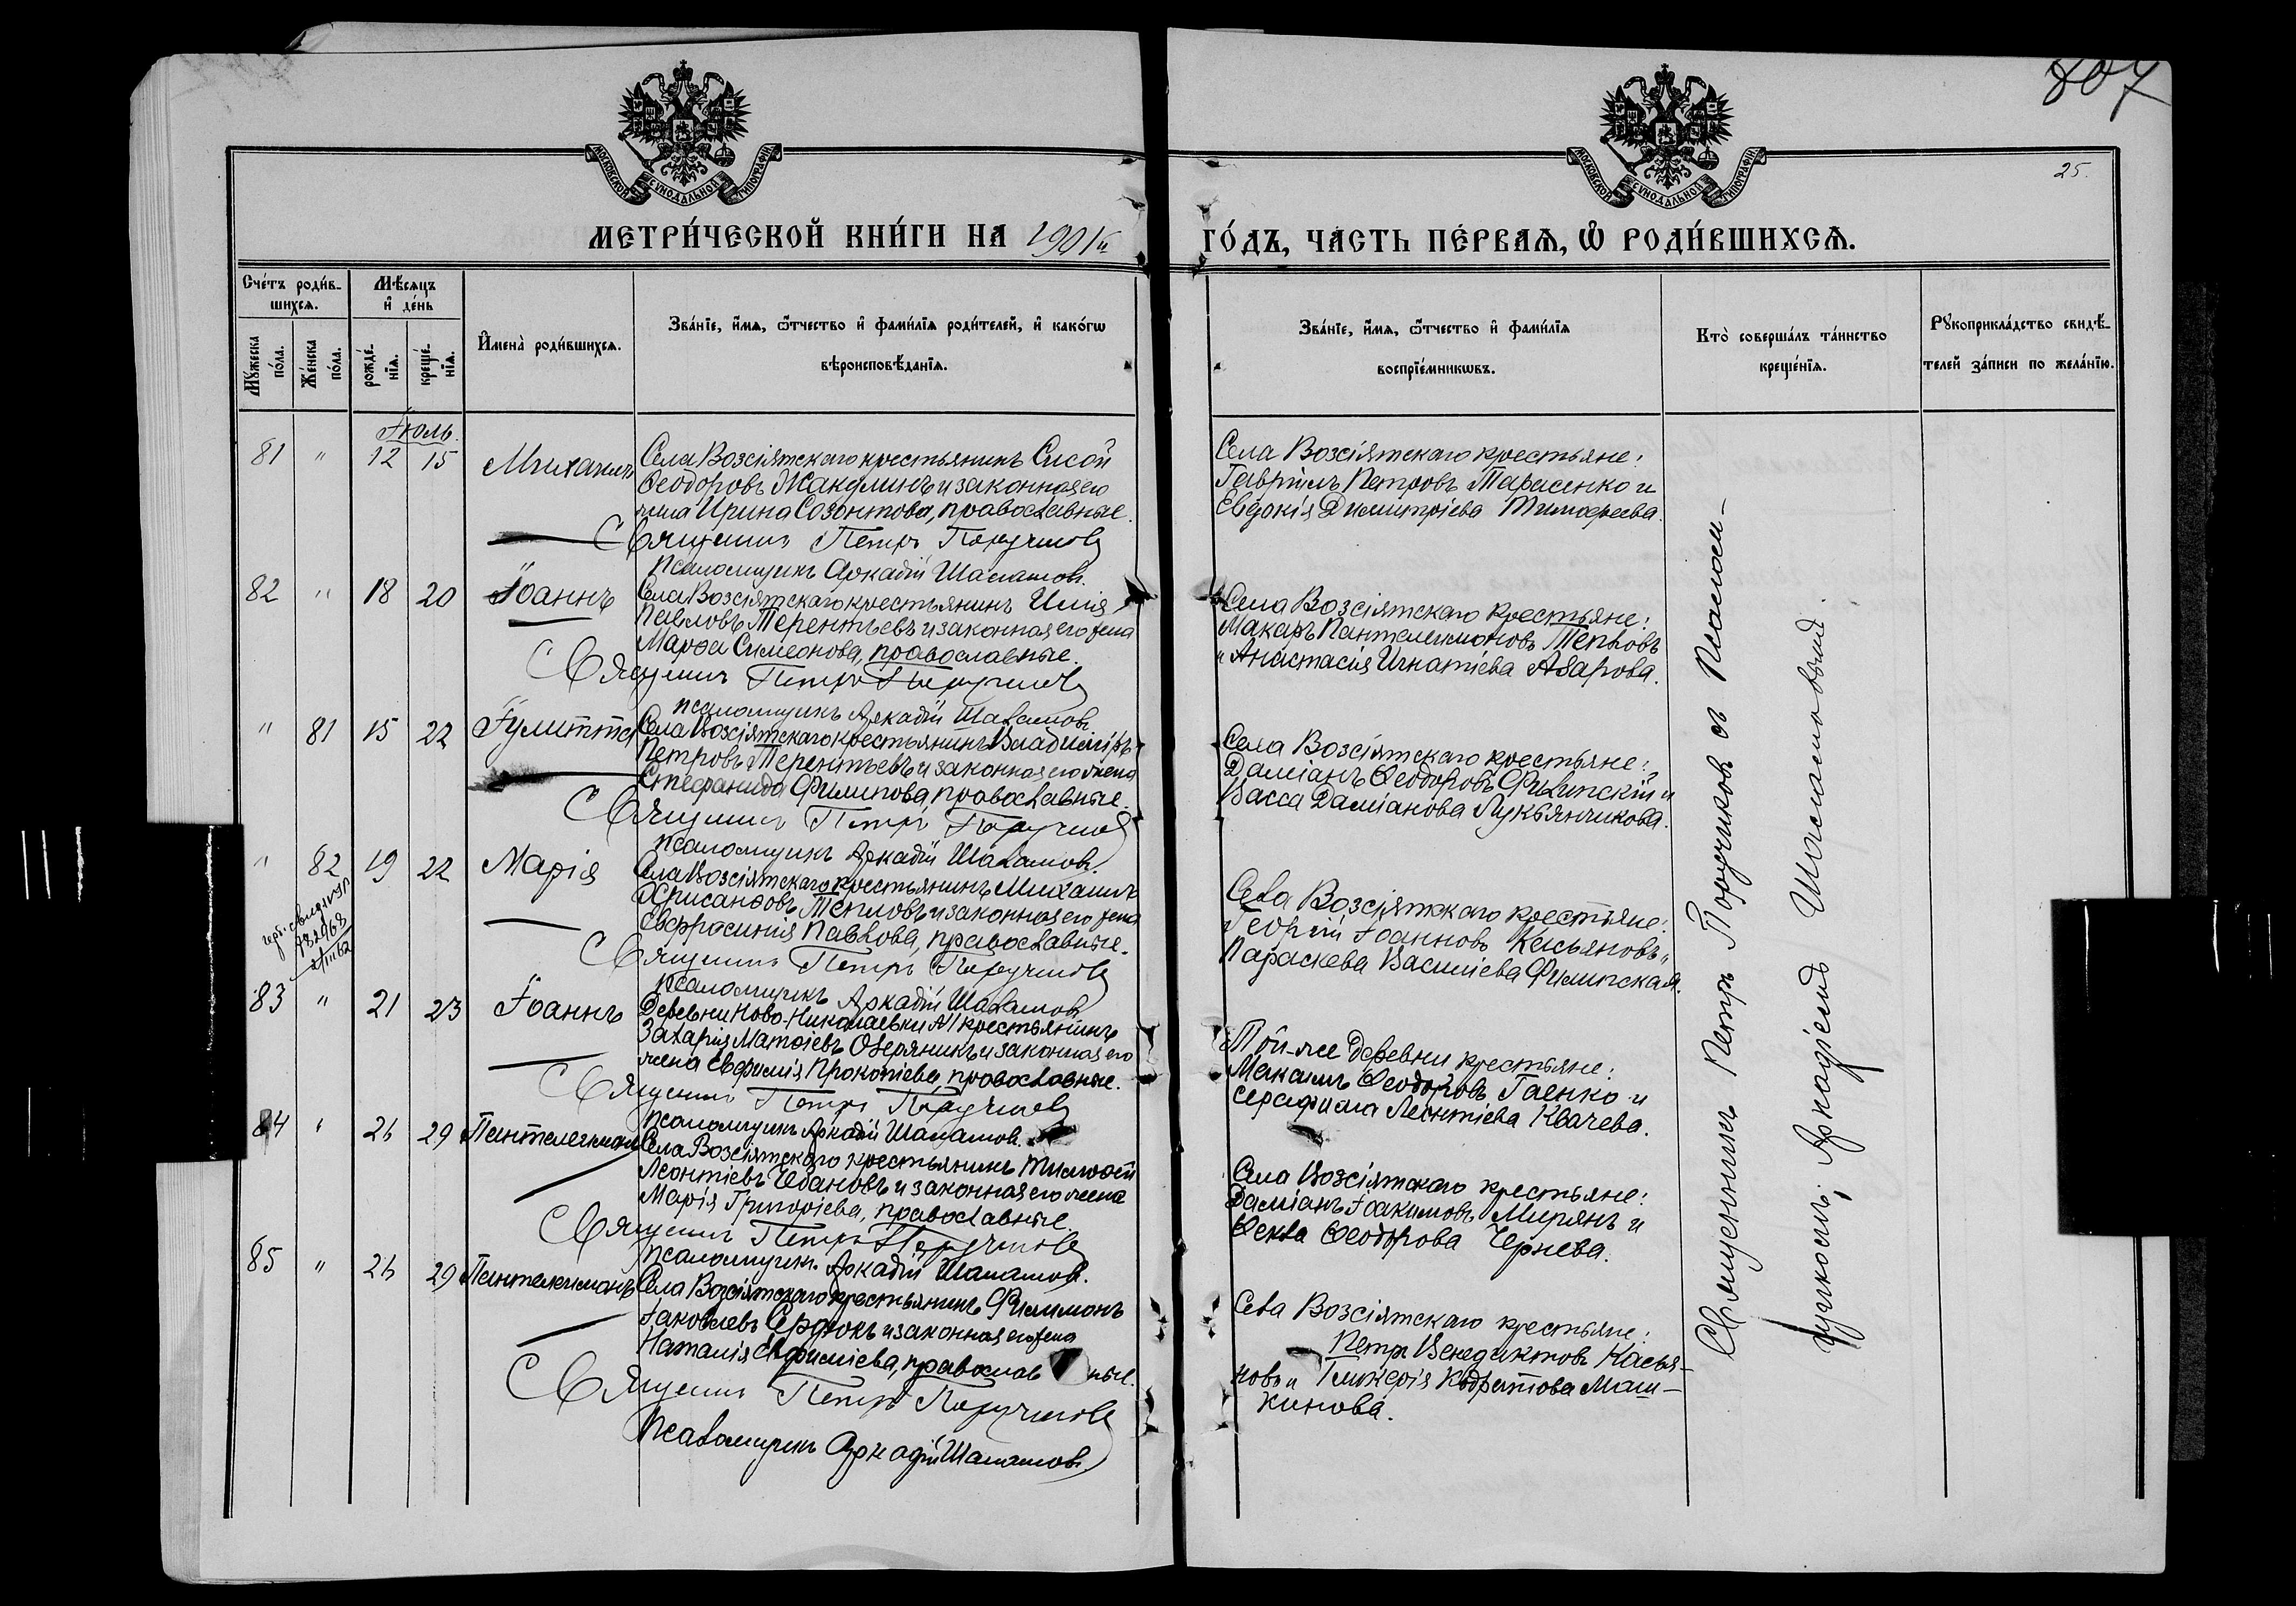 807
25.
МОСКОВСКОЙ СУНОДАЛЬНОЙ ТИПОГРАФІИ
МОСКОВСКОЙ СУНОДАЛЬНОЙ ТИПОГРАФІИ
МЕТРИ́ЧЕСКОЙ КНИ́ГИ НА 1901й
ГО́ДЪ, ЧА́СТЬ ПЕ́РВАѦ, Ѽ РОДИ́ВШИХСѦ.
Сче́тъ роди́в-
шихсѧ.
Мѣ́сяцъ
и҆ де́нь
Мꙋ́жеска
по́ла.
Же́нска
по́ла.
рожде́-
нїѧ.
креще́-
нїѧ.
И҆мена̀ роди́вшихсѧ.
Зва́нїе, и҆́мѧ, ѻ҆́тчество и҆ фами́лїѧ роди́телей, и҆ како́гѡ
вѣроисповѣ́данїѧ.
Зва́нїе, и҆́мѧ, ѻ҆́тчество и҆ фами́лїѧ
воспрїе́мникѡвъ.
Кто̀ соверша́лъ та́инство
креще́нїѧ.
Рꙋкоприкла́дство свидѣ́-
телей за́писи по жела́нїю.
Іюль.
81 " 12 15 Михаилъ
Села Возсіятскаго крестьянинъ Сисой
Ѳеодоровъ Жакулинъ и законная его
жена Ирина Созонтова, православные.
Священникъ Петръ Поручиковъ
Псаломщикъ Аркадій Шаламовъ.
Села Возсіятскаго крестьяне:
Гавріилъ Петровъ Тарасенко и
Евдокія Димитріева Тимоѳеева.
82 " 18 20 Іоаннъ
Села Возсіятскаго крестьянинъ Илія
Павловъ Терентьевъ и законная его жена
Марѳа Симеонова, православные.
Священникъ Петръ Поручиковъ
Псаломщикъ Аркадій Шаламовъ
Села Возсіятскаго крестьяне:
Макаръ Пантелеимоновъ Тепловъ
и Анастасія Игнатіева Азарова.
" 81 15 22 Іулитта
Села Возсіятскаго крестьянинъ Владиміръ
Петровъ Терентьевъ и законная его жена
Стефанида Филипова, православные.
Священникъ Петръ Поручиковъ
Псаломщикъ Аркадій Шаламовъ.
Села Возсіятскаго крестьяне:
Даміанъ Ѳеодоровъ Филипскій и
Васса Даміанова Лукьянчикова.
" 82 19 22 Марія
782968
Села Возсіятскаго крестьянинъ Михаилъ
Хрисанѳовъ Тепловъ и законная его жена
Евфросинія Павлова, православные.
Священникъ Петръ Поручиковъ
Псаломщикъ Аркадій Шаламовъ
Села Возсіятскаго крестьяне:
Георгій Іоанновъ Касьяновъ и
Параскева Василіева Филипская.
83 " 21 23 Іоаннъ
Деревни Ново-Николаевки №1 крестьянинъ
Захарія Матѳіевъ Озеряникъ и законная его
жена Евфимія Прокопіева, православные.
Священникъ Петръ Поручиковъ
Псаломщикъ Аркадій Шаламовъ.
Той-же деревни крестьяне:
Максимъ Ѳеодоровъ Гаенко и
Серафима Леонтіева Квачева.
84 " 26 29 Пантелеимонъ
Села Возсіятскаго крестьянинъ Тимоѳей
Леонтіевъ Чебановъ и законная его жена
Марія Григоріева, православные.
Священникъ Петръ Поручиковъ
Псаломщикъ Аркадій Шаламовъ.
Села Возсіятскаго крестьяне:
Даміанъ Іоакимовъ Мирянъ и
Ѳекла Ѳеодорова Чернева.
85 " 26 29 Пантелеимонъ
Села Возсіятскаго крестьянинъ Филимонъ
Іаковлевъ Сердюкъ и законная его жена
Наталія Евфиміева, православные.
Священникъ Петръ Поручиковъ
Псаломщикъ Аркадій Шаламовъ
Села Возсіятскаго крестьяне:
Петръ Венедиктовъ Касья-
новъ и Гликерія Кодратова Маш-
кинова.
Священникъ Петръ Поручиковъ съ Псалом-
щикомъ Аркадіемъ Шаламовымъ.